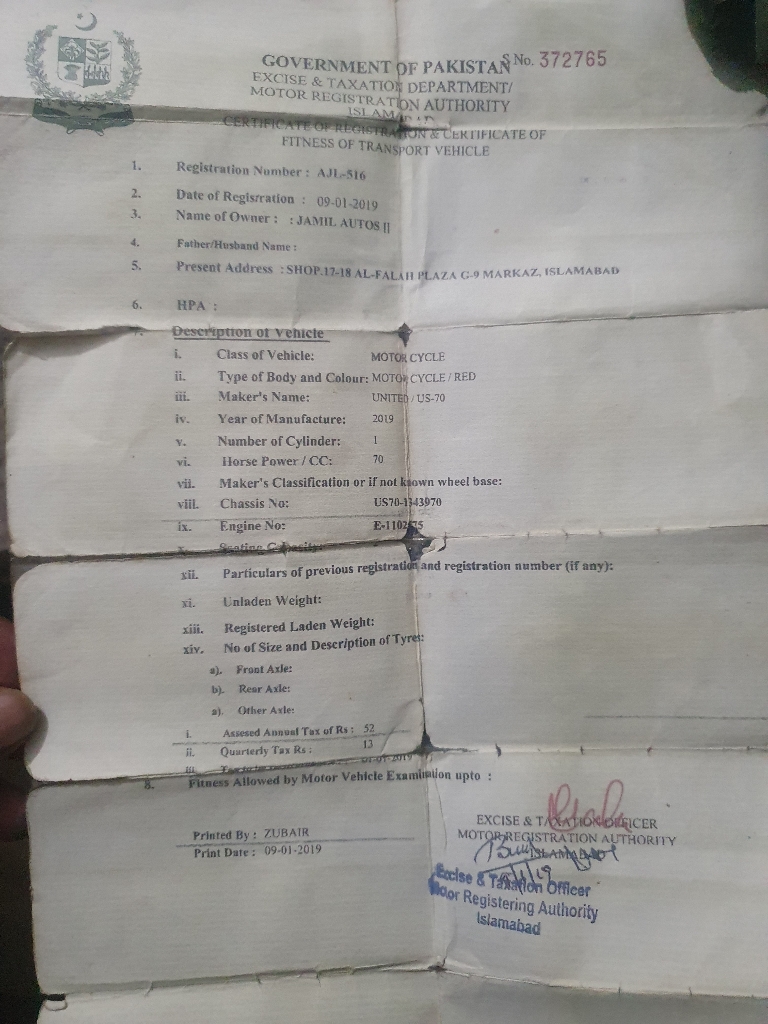 S No. 372765
GOVERNMENT OF PAKISTAN
EXCISE & TAXATION DEPARTMENT/
MOTOR REGISTRATION AUTHORITY
ISLAMABAD
CERTIFICATE OF REGISTRATION & CERTIFICATE OF
FITNESS OF TRANSPORT VEHICLE
1. Registration Number : AJL-516
2. Date of Regisrration : 09-01-2019
3. Name of Owner : : JAMIL AUTOS II
4. Father/Husband Name :
5. Present Address : SHOP.17-18 AL-FALAH PLAZA G-9 MARKAZ, ISLAMABAD
6. HPA :
7. Description of Vehicle
i. Class of Vehicle: MOTOR CYCLE
ii. Type of Body and Colour: MOTOR CYCLE / RED
iii. Maker's Name: UNITED / US-70
iv. Year of Manufacture: 2019
v. Number of Cylinder: 1
vi. Horse Power / CC: 70
vii. Maker's Classification or if not known wheel base:
viii. Chassis No: US70-1343970
ix. Engine No: E-1102
x. Seating Capacity:
xii. Particulars of previous registration and registration number (if any):
xi. Unladen Weight:
xiii. Registered Laden Weight:
xiv. No of Size and Description of Tyres:
a). Front Axle:
b). Rear Axle:
a). Other Axle:
i. Assesed Annual Tax of Rs : 52
ii. Quarterly Tax Rs : 13
iii. Tax to be 01-01-2019
8. Fitness Allowed by Motor Vehicle Examination upto :
EXCISE & TAXATION OFFICER
MOTOR REGISTRATION AUTHORITY
ISLAMABAD
Printed By : ZUBAIR
Print Date : 09-01-2019
Excise & Taxation Officer
Motor Registering Authority
Islamabad